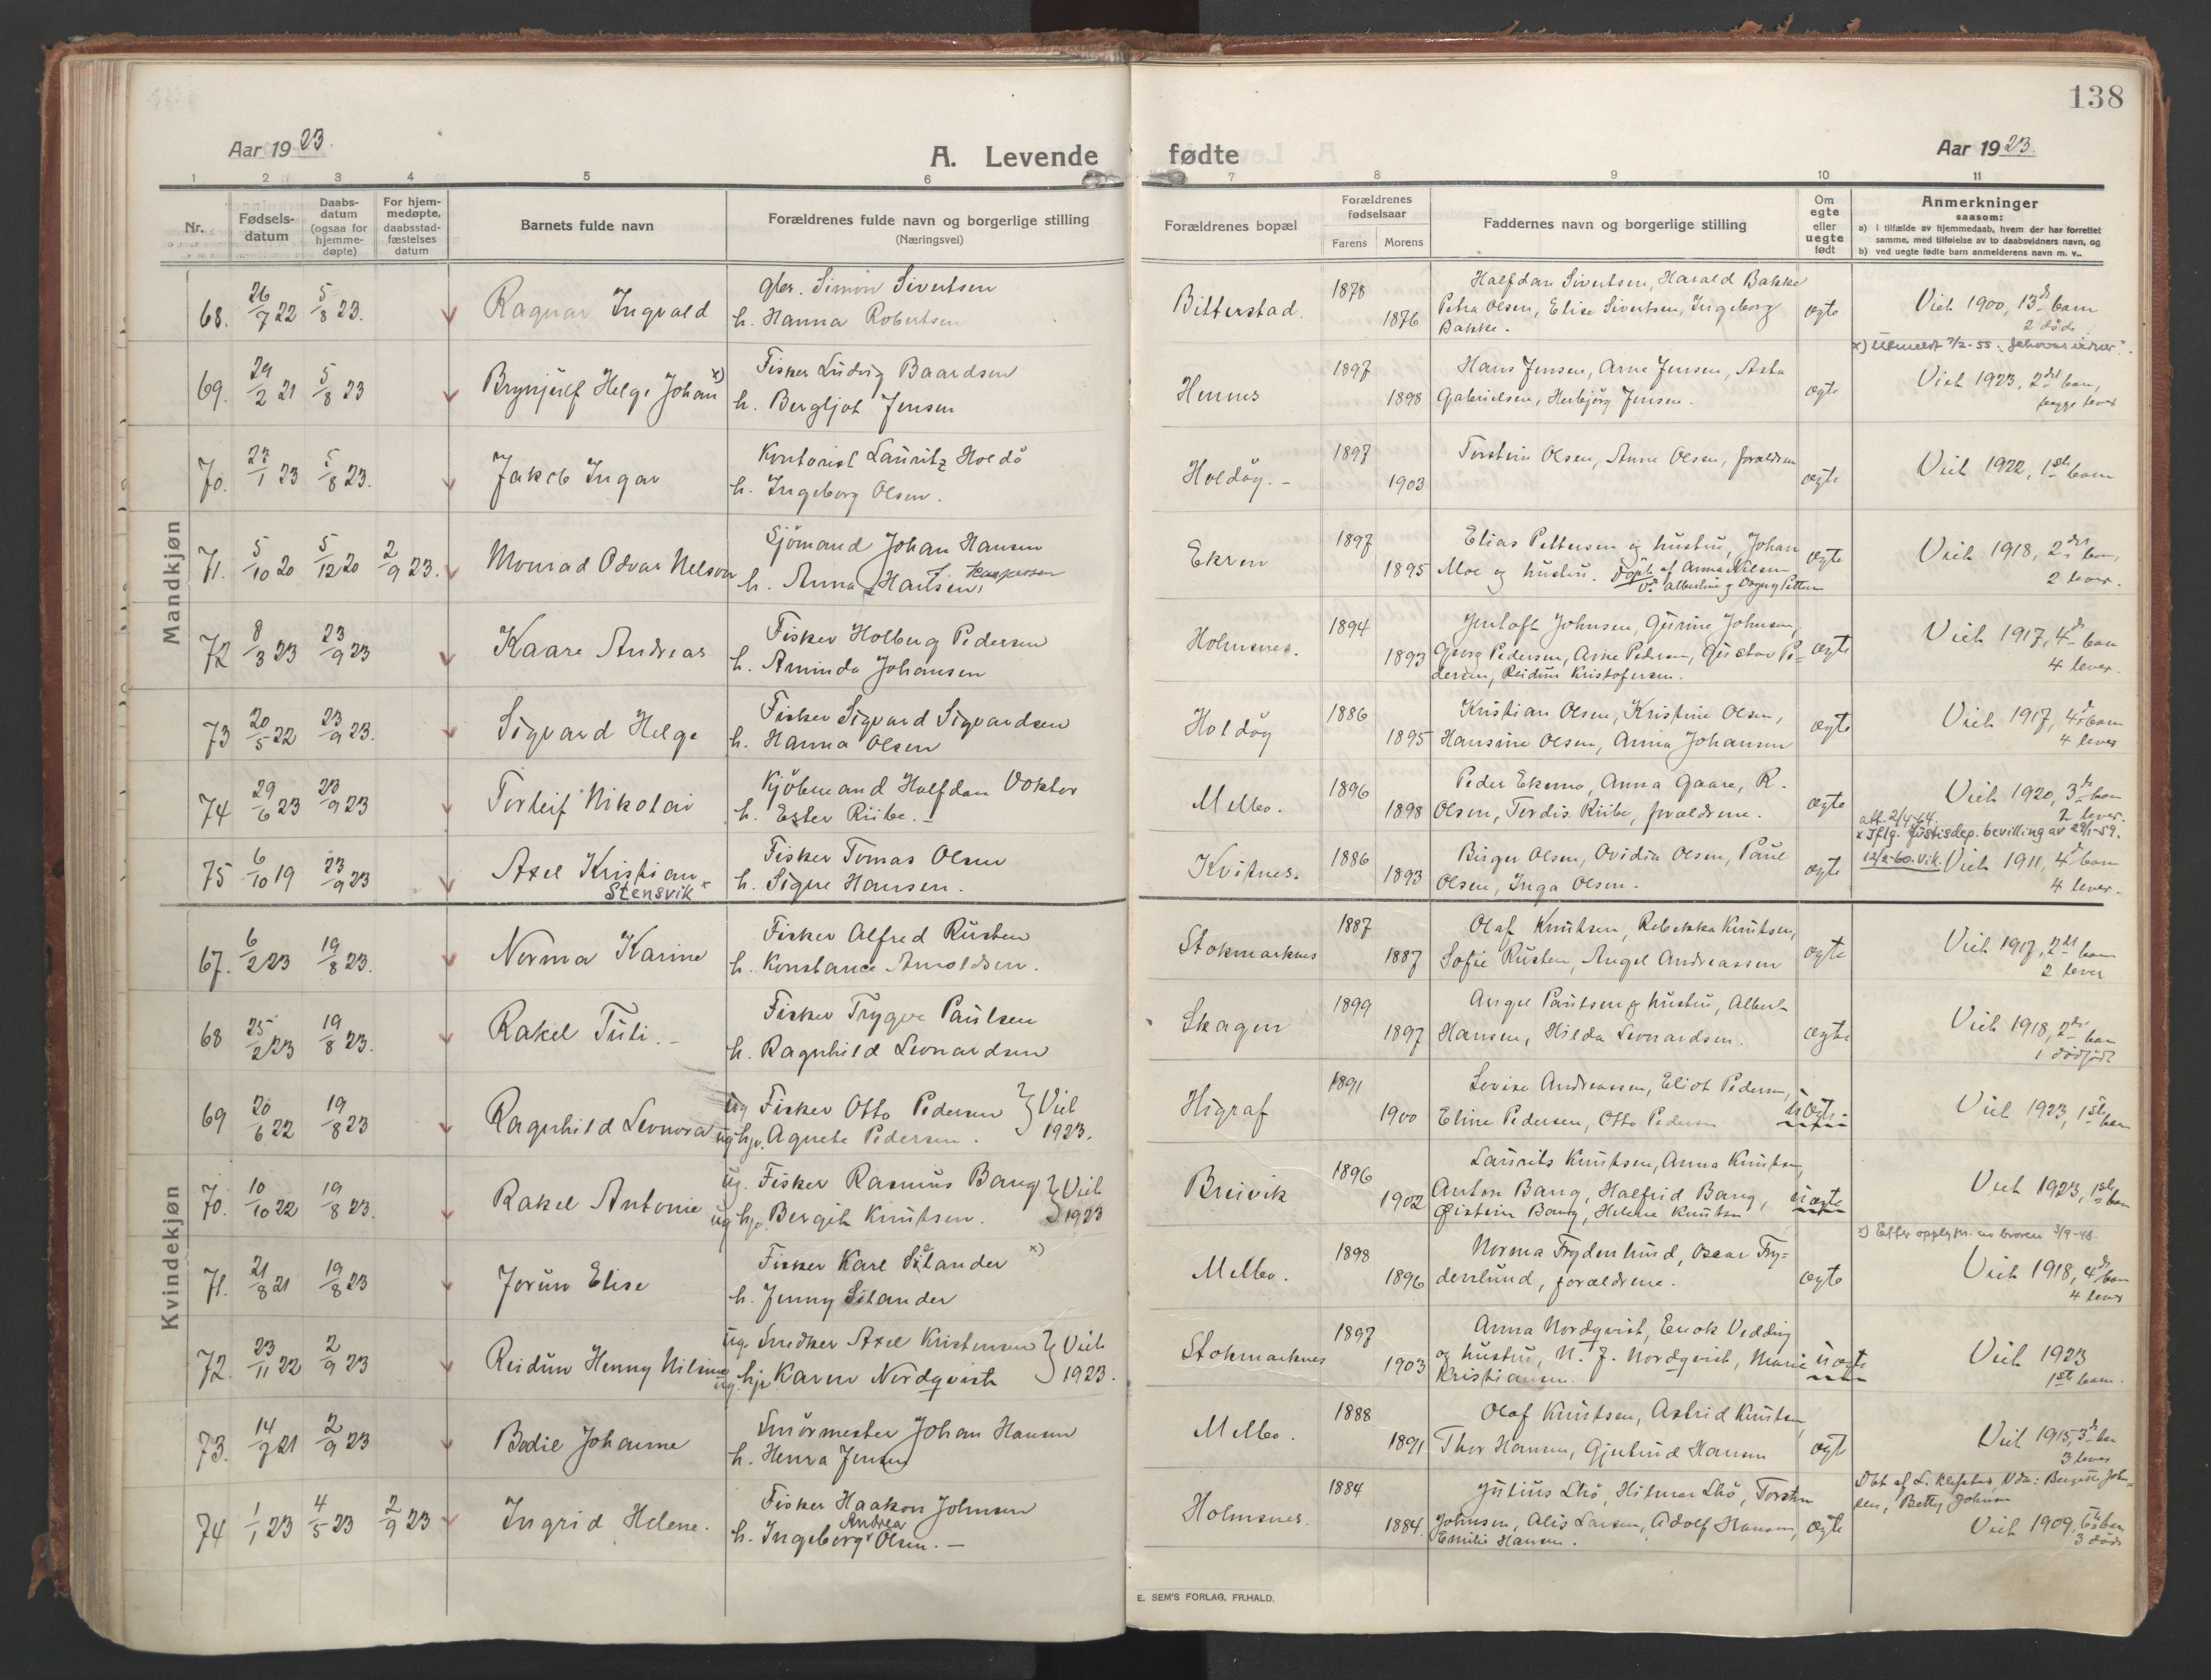 138
Aar 1923.
A. Levende fødte
Aar 1923.
1 2 3 4 5 6 7 8 9 10 11
Nr.
Fødsels-
datum
Daabs-
datum
(ogsaa for
hjemme-
døpte)
For hjem-
medøpte,
daabsstad-
fæstelses
datum
Barnets fulde navn
Forældrenes fulde navn og borgerlige stilling
(Næringsvei)
Forældrenes bopæl
Forældrenes
fødselsaar
Farens Morens
Faddernes navn og borgerlige stilling
Om
egte
eller
uegte
født
Anmerkninger
saasom:
a) i tilfælde av hjemmedaab, hvem der har forrettet
samme, med tilføielse av to daabsvidners navn, og
b) ved uegte fødte barn anmelderens navn m. v..
Mandkjøn
68. 26/7 22 5/8 23. Ragnar Ingvald
gbr. Simon Sivertsen
h. Hanna Robertsen
Bitterstad. 1878 1876
Halfdan Sivertsen, Harald Bakke
Petra Olsen, Elise Sivertsen, Ingeborg
Bakke.
egte
Viet 1900, 13d barn
2 døde
x) Utmeldt 7/2-55 "Jehovas vidner".
69. 29/2 21 5/8 23 Brynjulf Helge Johan x)
Fisker Ludvig Baardsen
h. Bergljot Jensen
Hennes 1897 1898
Hans Jensen, Arne Jensen, Asta
Gabrielsen, Herbjørg Jensen.
egte
Viet 1923, 2det barn,
begge lever
70. 27/1 23 5/8 23. Jakob Ingar
Kontorist Lauritz Holdø
h. Ingeborg Olsen.
Holdøy. - 1897 1903
Torstein Olsen, Anne Olsen, forældrene
egte
Viet 1922, 1ste barn
71. 5/10 20 5/12 20 2/9 23. Monrad Odvar Nelson
Sjømand Johan Hansen
h. Anna Hansen, Kaspersen
Ekren 1897 1895
Elias Pettersen og hustru, Johan
Moe og hustru. Døpt af Anna Nilsen
Albertine og Dagny Petters
egte
Viet 1918, 2det barn,
2 lever.
72 8/3 23 23/9 23 Kaare Andreas
Fisker Holberg Pedersen
h. Aminda Johansen
Holmsnes. 1894 1893
Jentoft Johnsen, Gurine Johnsen,
Georg Pedersen, Arne Pedersen, Gustav Pe-
dersen, Reidun Kristofersen.
egte
Viet 1917, 4de barn
4 lever.
73 20/5 22 23/9 23. Sigvard Helge
Fisker Sigvard Sigvardsen
h. Hanna Olsen
Holdøy 1886 1895
Kristian Olsen, Kristine Olsen,
Hansine Olsen, Anna Johansen
egte
Viet 1917, 4de barn
4 lever
74 29/6 23 23/9 23 Torleif Nikolai
Kjøbmand Halfdan Doktor
h. Ester Riibe. -
Melbo. 1896 1898
Peder Ekerno, Anna Gaare, R.
Olsen, Tordis Riibe, forældrene.
egte
Viet 1920, 3de barn
2 lever.
att. 2/4-64.
x Iflg. Justisdep. bevilling av 29/1-59.
75 6/10 19 23/9 23 Axel Kristian x
Stensvik
Fisker Tomas Olsen
h. Signe Hansen.
Kvitnes. 1886 1893
Birger Olsen, Ovidia Olsen, Paul
Olsen, Inga Olsen.
egte
12/2-60. Vik. Viet 1911, 4de barn
4 lever.
Kvindekjøn
67. 6/2 23 19/8 23. Norma Karine
Fisker Alfred Rusten
h. Konstance Arnoldsen.
Stokmarknes 1887 1887
Olaf Knutsen, Rebekka Knutsen,
Sofie Rusten, Angel Andreassen
egte
Viet 1917, 2det barn
2 lever
68 25/2 23 19/8 23. Rakel Tuti. -
Fisker Trygve Paulsen
h. Ragnhild Leonardsen
Skagen 1899 1897
Angel Paulsen og hustru, Albert
Hansen, Hilda Leonardsen.
egte
Viet 1918, 2det barn
1 dødfødt
69 20/6 22 19/8 23 Ragnhild Leonora
ug Fisker Otto Pedersen } Viet
ug hp. Agnete Pedersen. 1923.
Higraf 1891 1900
Lovise Andreassen, Eliot Pedersen,
Eline Pedersen, Otto Pedersen
uegte
Viet 1923, 1ste barn
70. 10/10 22 19/8 23. Rakel Antonie
ug. Fisker Rasmus Bang } Viet
ug hp. Bergit Knutsen. 1923
Breivik 1896 1902
Laurits Knutsen, Anna Knutsen,
Anton Bang, Halfrid Bang,
Øistein Bang, Helene Knutsen
uegte
Viet 1923, 1ste barn
x) Efter opplysn. av broren 3/9-48.
71. 21/8 21 19/8 23 Jorun Elise
Fisker Karl Silander x)
h. Jenny Silander
Melbo. 1898 1896
Norma Frydenlund, Oscar Fry-
denlund, forældrene.
egte
Viet 1918, 4de barn
4 lever
72. 23/11 22 2/9 23 Reidun Henny Nilsine
ug. Snedker Axel Kristensen } Viet
ug. hp Karen Nordqvist 1923.
Stokmarknes 1897 1903
Anna Nordqvist, Enok Vedding
og hustru, N. J. Nordqvist, Marie
Kristiansen.
uegte
Viet 1923
1st barn.
73. 14/7 21 2/9 23 Bodil Johanne
Smørmester Johan Hansen
h. Henra Jensen
Melbo. 1888 1891
Olaf Knutsen, Astrid Knutsen,
Thor Hansen, Gjertrud Hansen
egte
Viet 1915, 3de barn
3 lever
74 1/1 23 4/5 23 2/9 23 Ingrid Helene.
Fisker Haakon Johnsen
h. Ingeborg Andrea Olsen. -
Holmsnes. 1884 1884.
Julius Lhø, Hilmar Lhø, Torsten
Johnsen, Alis Larsen, Adolf Hansen,
Emilie Hansen.
egte
Døbt af L. Klefstad, Vdn: Bergitte John-
sen, Betty Johnsen
Viet 1909, 6te barn
3 døde
E. SEM'S FORLAG, FR.HALD.